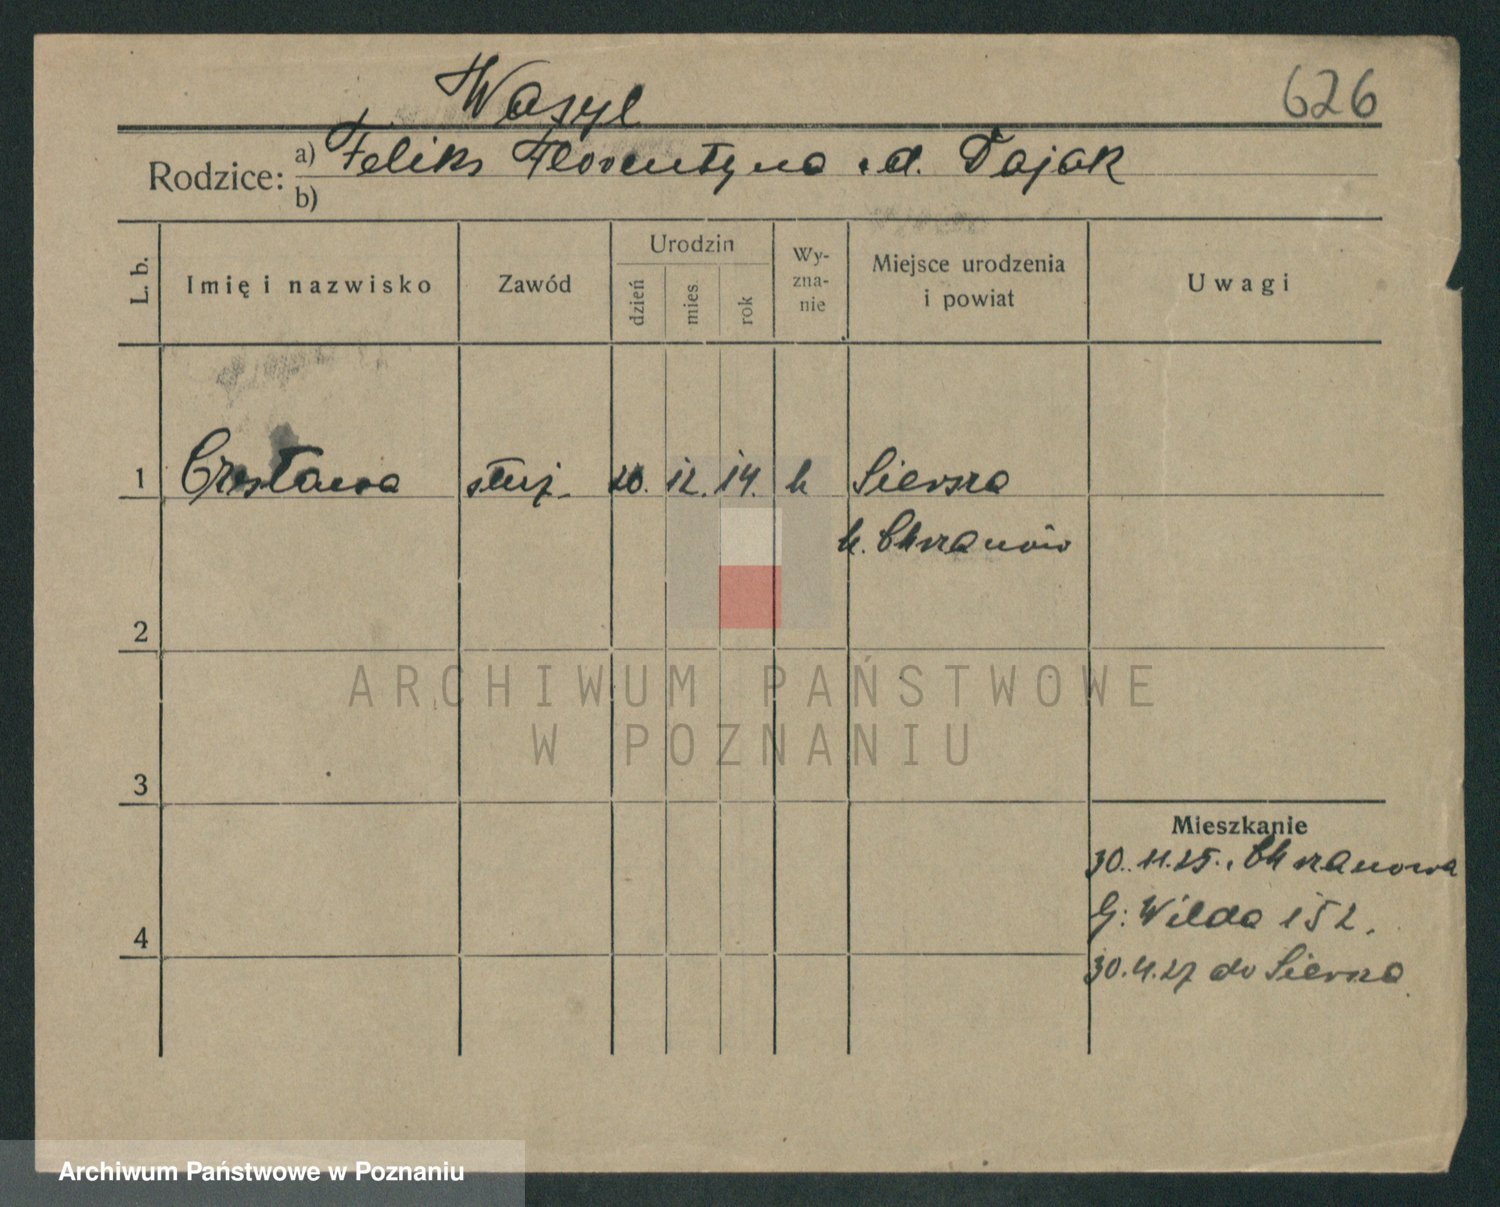 626
Wasyl
Rodzice: a) Feliks Florentyna z d. Pająk
b)
L. b. Imię i nazwisko Zawód Urodzin dzień mies. rok Wy-zna-nie Miejsce urodzenia i powiat Uwagi
1 Czesława służ. 20. 12. 14. k Siersza
k. Chrzanów
2
ARCHIWUM PAŃSTWOWE
W POZNANIU
3
Mieszkanie
30. 11. 25. z Chrzanowa
G: Wilda 152.
4
30. 4. 27 do Siersza
Archiwum Państwowe w Poznaniu